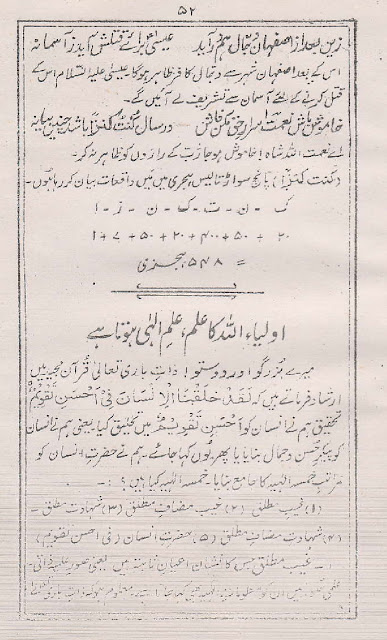 ۵۲
زین بعد از اصفہان دجال ہم در آید عیسیٰ برائے قتلش آید ز آسمانہ
اس کے بعد اصفہان شہر سے دجال کا فر ظاہر ہوگا۔ عیسیٰ علیہ السلام اس کے
قتل کرنے کے لئے آسمان سے تشریف لے آئیں گے۔
خاموش باش نعمت اسرار حق مکن فاش در سال کنت کنزاً باشد چنیں بیانہ
اے نعمت اللہ شاہ! خاموش ہو جا، رب کے رازوں کو ظاہر نہ کر۔
(کنت کنزاً) پانچ سو اڑتالیس ہجری میں میں واقعات بیان کر رہا ہوں۔
ک - ن - ت - ک - ن - ز - ا
۲۰ + ۵۰ + ۴۰۰ + ۲۰ + ۵۰ + ۷ + ۱
= ۵۴۸ ہجری
اولیاء اللہ کا علم، علمِ الٰہی ہوتا ہے
میرے بزرگو اور دوستو! ذاتِ باری تعالیٰ قرآن مجید میں
ارشاد فرماتے ہیں کہ لَقَدْ خَلَقْنَا الْاِنْسَانَ فِیْ اَحْسَنِ تَقْوِیْمٍ
تحقیق ہم نے انسان کو اَحْسَنِ تَقْوِیْمٍ میں تخلیق کیا۔ یعنی ہم نے انسان
کو پیکرِ حسن و جمال بنایا یا پھر یوں کہا جائے۔ ہم نے حضرتِ انسان کو
مراتبِ خمسہ الٰہیہ کا جامع بنایا۔ خمسہ الٰہیہ کیا ہیں؟ :-
(۱) غیب مطلق (۲) غیب مضافِ مطلق (۳) شہادت مطلق -
(۴) شہادت مضافِ مطلق (۵) حضرتِ انسان (فی احسن تقویم)
۱- غیب مطلق جس کا نشان اعیانِ ثابتہ ہیں یعنی صور علمیہ ذاتی
علمی